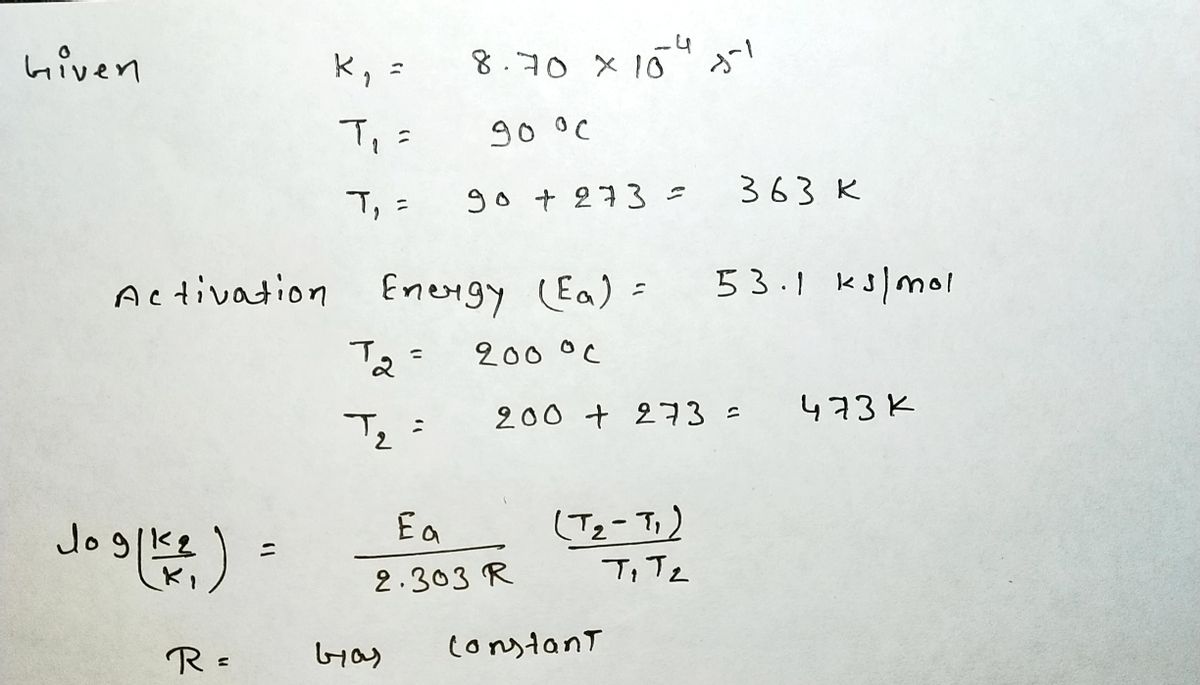 Given K₁ = 8.70 × 10⁻⁴ s⁻¹
T₁ = 90 °C
T₁ = 90 + 273 = 363 K
Activation Energy (Ea) = 53.1 kJ/mol
T₂ = 200 °C
T₂ = 200 + 273 = 473 K
log(K₂/K₁) = Ea/2.303 R (T₂-T₁)/T₁T₂
R = Gas constant